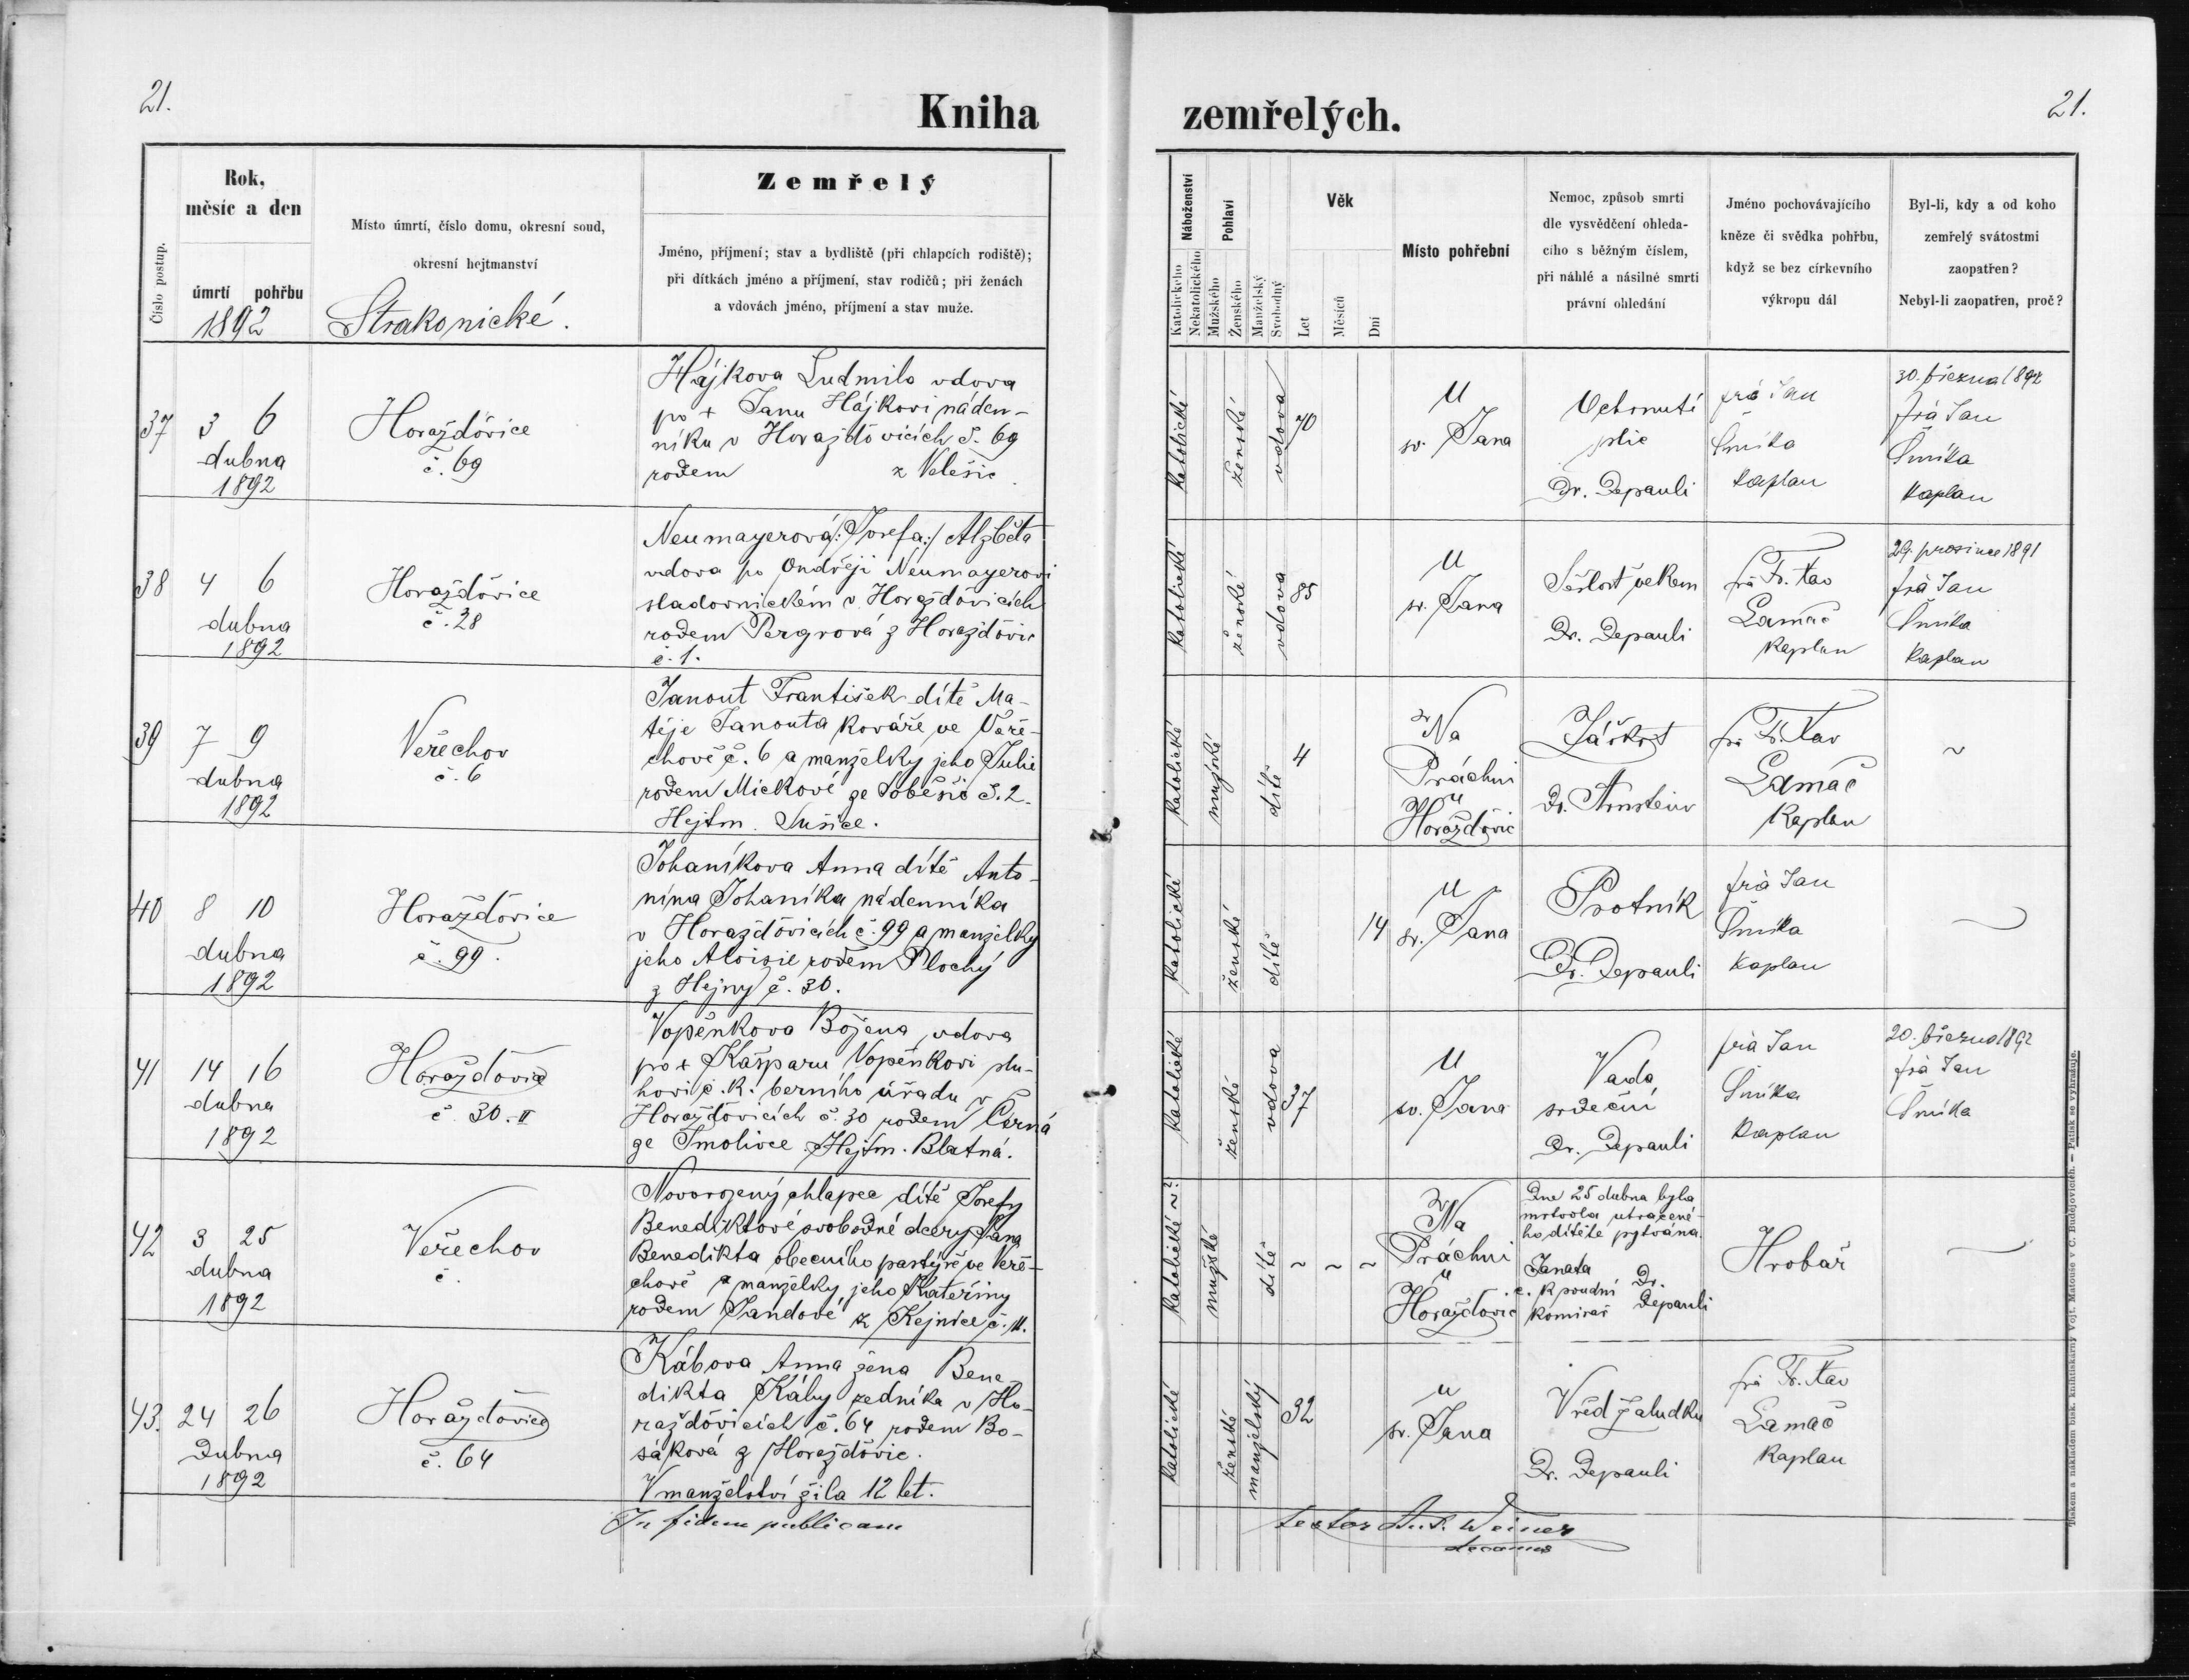 21.
Kniha
zemřelých.
21.
Číslo postup.
Rok,
měsíc a den
úmrtí pohřbu
1892
Místo úmrtí, číslo domu, okresní soud,
okresní hejtmanství
Strakonické.
Zemřelý
Jméno, příjmení; stav a bydliště (při chlapcích rodiště);
při dítkách jméno a příjmení, stav rodičů; při ženách
a vdovách jméno, příjmení a stav muže.
Náboženství
Katolického
Nekatolického
Pohlaví
Mužského
Ženského
Manželský
Svobodný
Věk
Let
Měsíců
Dní
Místo pohřební
Nemoc, způsob smrti
dle vysvědčení ohleda-
cího s běžným číslem,
při náhlé a násilné smrti
právní ohledání
Jméno pochovávajícího
kněze či svědka pohřbu,
když se bez církevního
výkropu dál
Byl-li, kdy a od koho
zemřelý svátostmi
zaopatřen?
Nebyl-li zaopatřen, proč?
37
3 6
dubna
1892
Horažďovice
č. 69
Hájkova Ludmila vdova
po + Janu Hájkovi náden-
níku v Horažďovicích č. 69
rodem z Velešic
katolické
ženské
vdova
70
U
sv. Jana
Ochrnutí
plic
Dr. Depauli
frà Jan
Šmíka
kaplan
30. března 1892
frà Jan
Šmíka
kaplan
38
4 6
dubna
1892
Horažďovice
č. 28
Neumayerová /:Josefa:/ Alžběta
vdova po Ondřeji Neumayerovi
sladovnickém v Horažďovicích
rodem Pergrová z Horažďovic
č. 1.
katolické
ženské
vdova
85
U
sv. Jana
Sešlost věkem
Dr. Depauli
frà Fr. Xav
Lamač
kaplan
29. prosince 1891
frà Jan
Šmíka
kaplan
39
7 9
dubna
1892
Veřechov
č. 6
Janout František dítě Ma-
těje Janouta kováře ve Veře-
chově č. 6 a manželky jeho Julie
rodem Mickové ze Soběšic č. 2.
Hejtm. Sušice.
katolické
mužské
dítě
4
Na
Práchni
u
Horažďovic
Záškrt
Dr. Arnstein
frà Fr. Xav
Lamač
kaplan
~
40
8 10
dubna
1892
Horažďovice
č. 99.
Johaníkova Anna dítě Anto-
nína Johaníka nádenníka
v Horažďovicích č. 99 a manželky
jeho Aloisie rodem Plochý
z Hejny č. 30.
katolické
ženské
dítě
14
U
sv. Jana
Psotník
Dr. Depauli
frà Jan
Šmíka
kaplan
~
41
14 16
dubna
1892
Horažďovice
č. 30.-II
Vopěnkova Božena vdova
po + Kašparu Vopěnkovi slu-
hovi c. k. berního úřadu v
Horažďovicích č. 30 rodem Černá
ze Smolivce Hejtm. Blatná.
katolické
ženské
vdova
37
U
sv. Jana
Vada
srdeční
Dr. Depauli
frà Jan
Šmíka
kaplan
20. března 1892
frà Jan
Šmíka
42
3 25
dubna
1892
Veřechov
č.
Novorozený chlapec dítě Josefy
Benediktové svobodné dcery Jana
Benedikta obecního pastýře ve Veře-
chově a manželky jeho Kateřiny
rodem Jandové z Kejnice č. 11.
katolické
mužské
dítě
~ ~ ~
Na
Práchni
u
Horažďovic
Dne 25 dubna byla
mrtvola utracené-
ho dítěte pytvána.
Janata
c. k soudní
komisař
Dr.
Depauli
Hrobař
~
43.
24 26
Dubna
1892
Horažďovice
č. 64
Kábova Anna žena Bene-
dikta Káby zedníka v Ho-
ražďovicích č. 64 rodem Bo-
sáková z Horažďovic.
V manželství žila 12 let.
katolické
ženské
manželský
32
u
sv. Jana
Vřed žaludku
Dr. Depauli
frà Fr. Xav
Lamač
kaplan
In fidem publicam
testor Ant. Weiner
decanus
Tiskem a nákladem bisk. knihtiskárny Vojt. Matouse v Č. Budějovicích. — Patisk se vyhražuje.